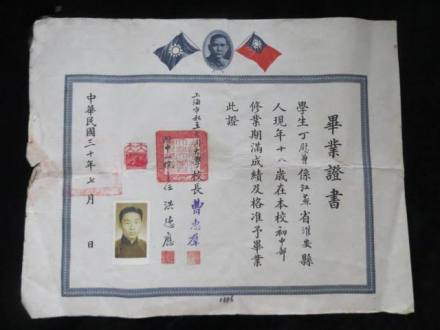 畢業證書
學生丁慰曾係江蘇省淮安縣
人現年十八歲在本校初中部
修業期滿成績及格准予畢業
此證
上海市私立大同大學校長曹惠群
附中一院主任洪
中華民國三十年七月 日